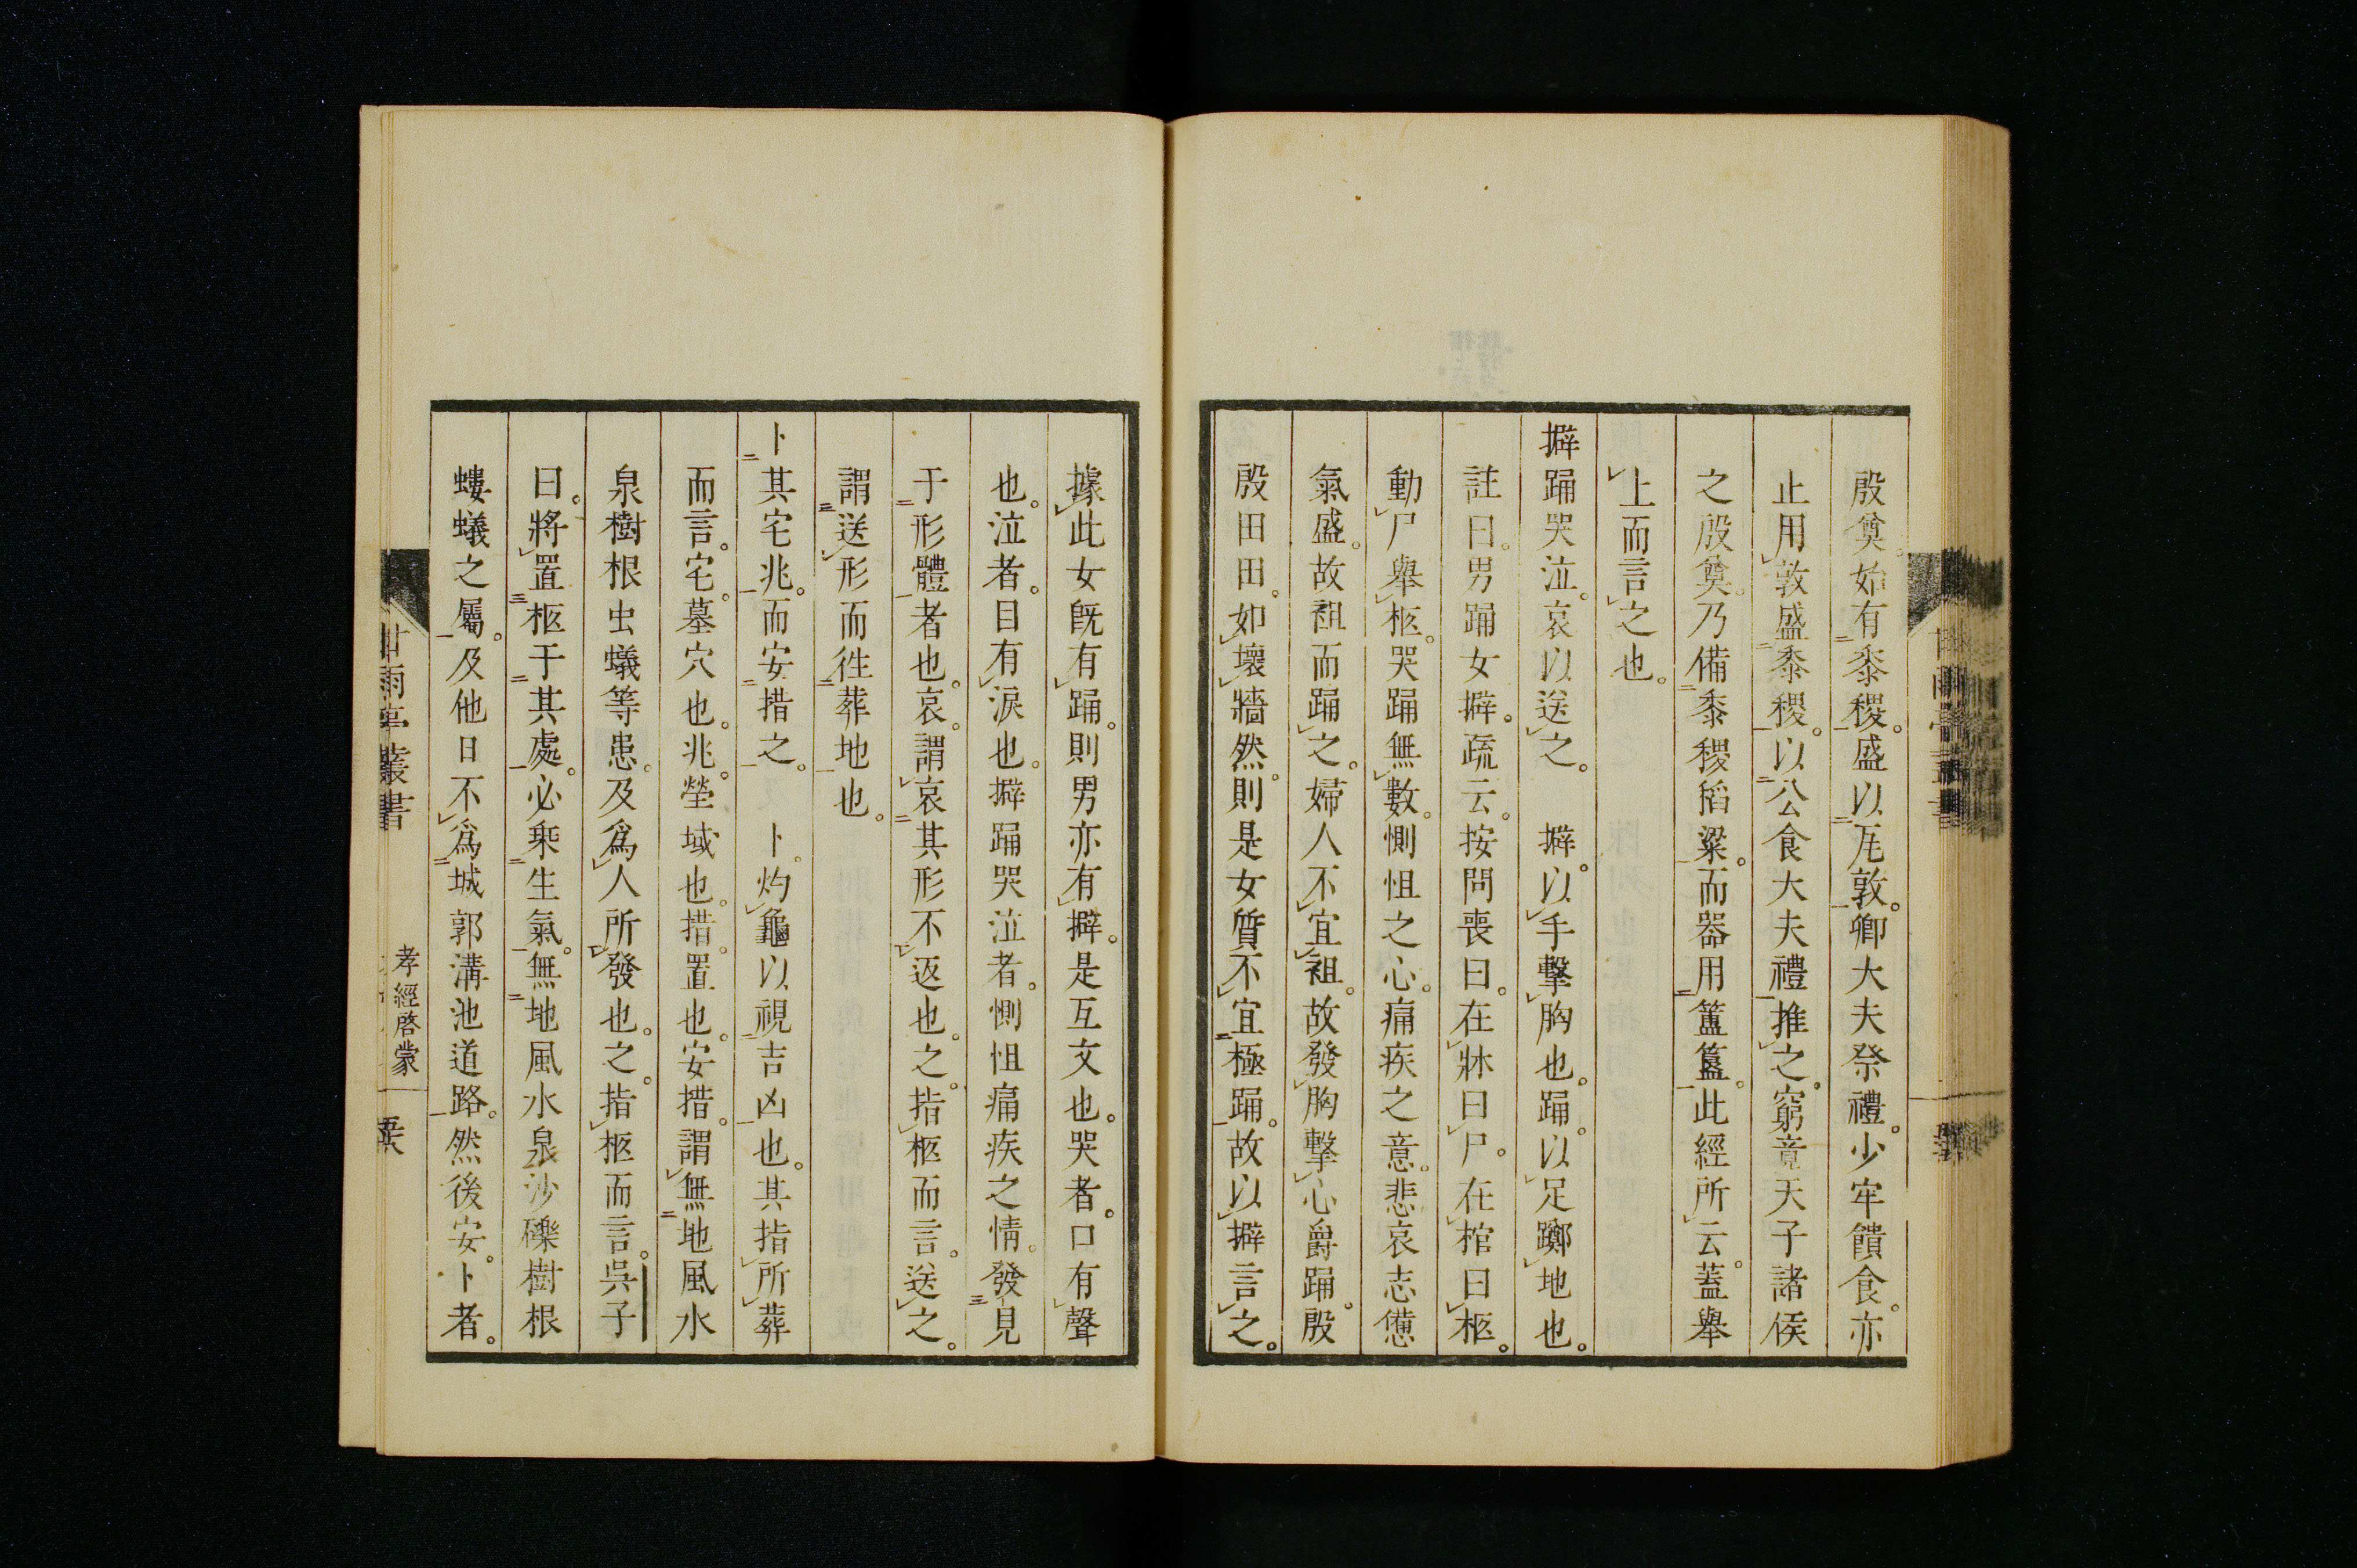 殷奠。始有黍稷。盛以瓦敦。卿大夫祭禮。少牢饋食。亦
止用敦盛黍稷。以公食大夫禮推之。窮竟天子諸侯
之殷奠。乃備黍稷稻粱。而器用簠簋。此經所云。蓋舉
上而言之也。
擗踊哭泣。哀以送之。　擗。以手擊胸也。踊。以足躑地也。
註曰。男踊女擗。疏云。按問喪曰。在牀曰尸。在棺曰柩。
動尸舉柩。哭踊無數。惻怛之心。痛疾之意。悲哀志懣
氣盛。故袒而踊之。婦人不宜袒。故發胸擊心爵踊。殷
殷田田。如壞牆然。則是女質不宜極踊。故以擗言之。
據此女既有踊。則男亦有擗。是互文也。哭者。口有聲
也。泣者。目有淚也。擗踊哭泣者。惻怛痛疾之情。發見
于形體者也。哀。謂哀其形不返也。之。指柩而言。送之。
謂送形而徃葬地也。
卜其宅兆。而安措之。　卜。灼龜以視吉凶也。其指所葬
而言。宅。墓穴也。兆。塋域也。措。置也。安措。謂無地風水
泉樹根虫蟻等患。及爲人所發也。之。指柩而言。吳子
曰。將置柩于其處。必乗生氣。無地風水泉沙礫樹根
螻蟻之屬。及他日不爲城郭溝池道路。然後安。卜者。
甘雨亭叢書
孝經啓蒙